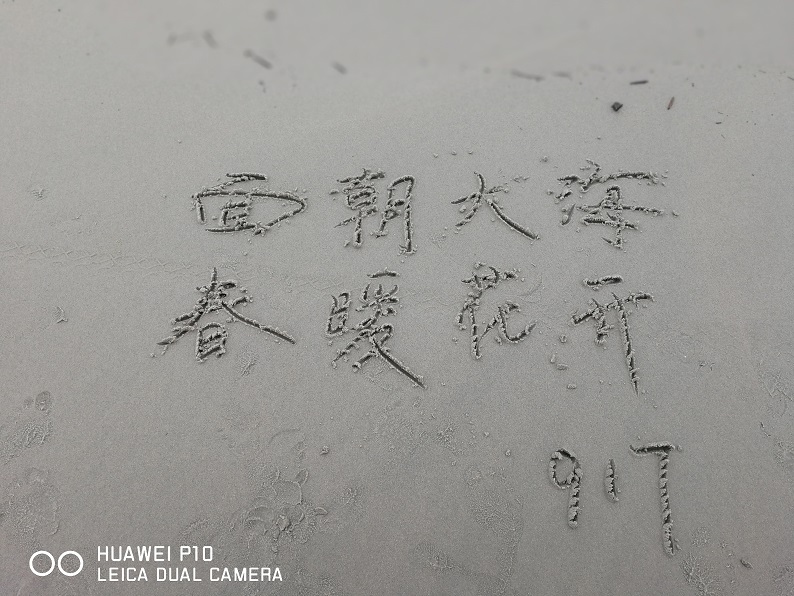 面朝大海
春暖花开
917
HUAWEI P10
LEICA DUAL CAMERA